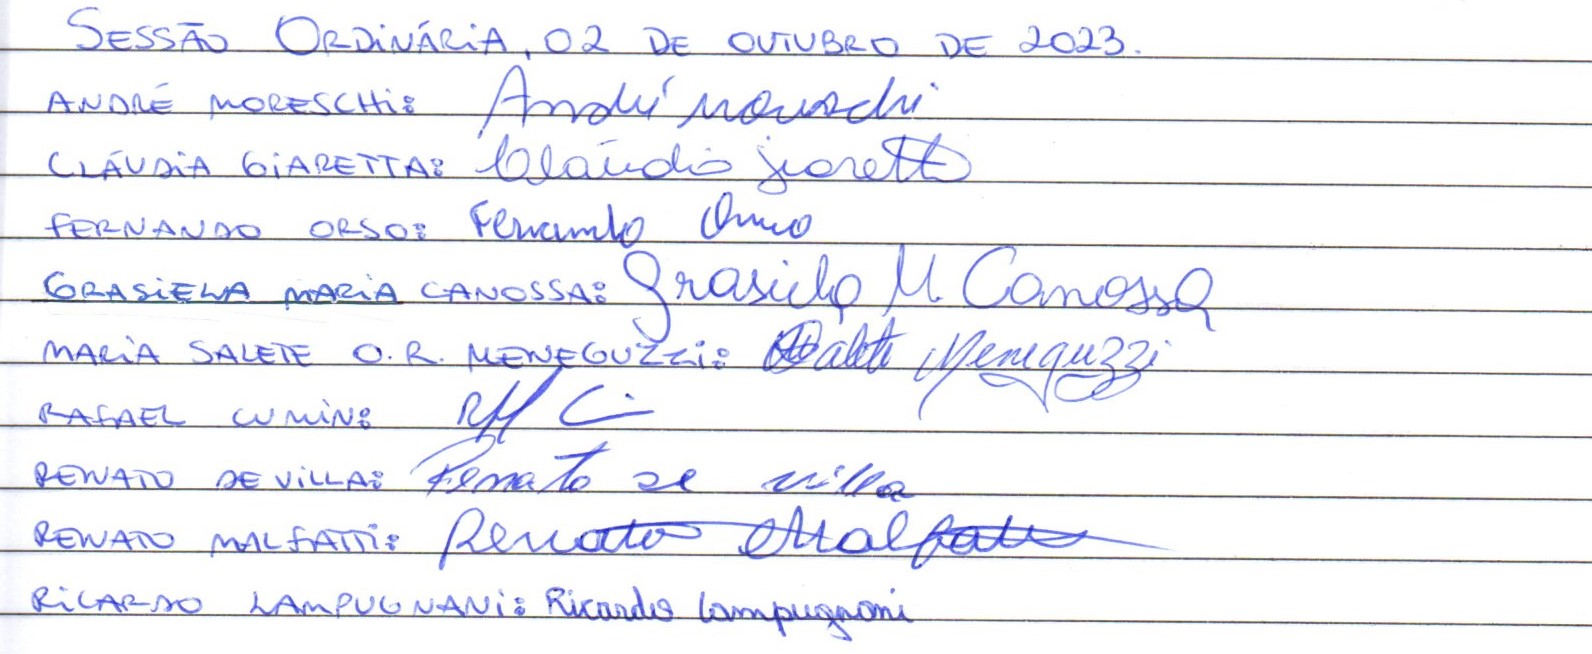 SESSÃO ORDINÁRIA, 02 DE OUTUBRO DE 2023.
ANDRÉ MORESCHI: André Moreschi
CLÁUDIA GIARETTA: Cláudia Giaretta
FERNANDO ORSO: Fernando Orso
GRASIELA MARIA CANOSSA: Grasiela M. Canossa
MARIA SALETE O. R. MENEGUZZI: Salete Meneguzzi
RAFAEL CUMIN:
RENATO DE VILLA: Renato de villa
RENATO MALFATTI: Renato Malfatti
RICARDO LAMPUGNANI: Ricardo Lampugnani